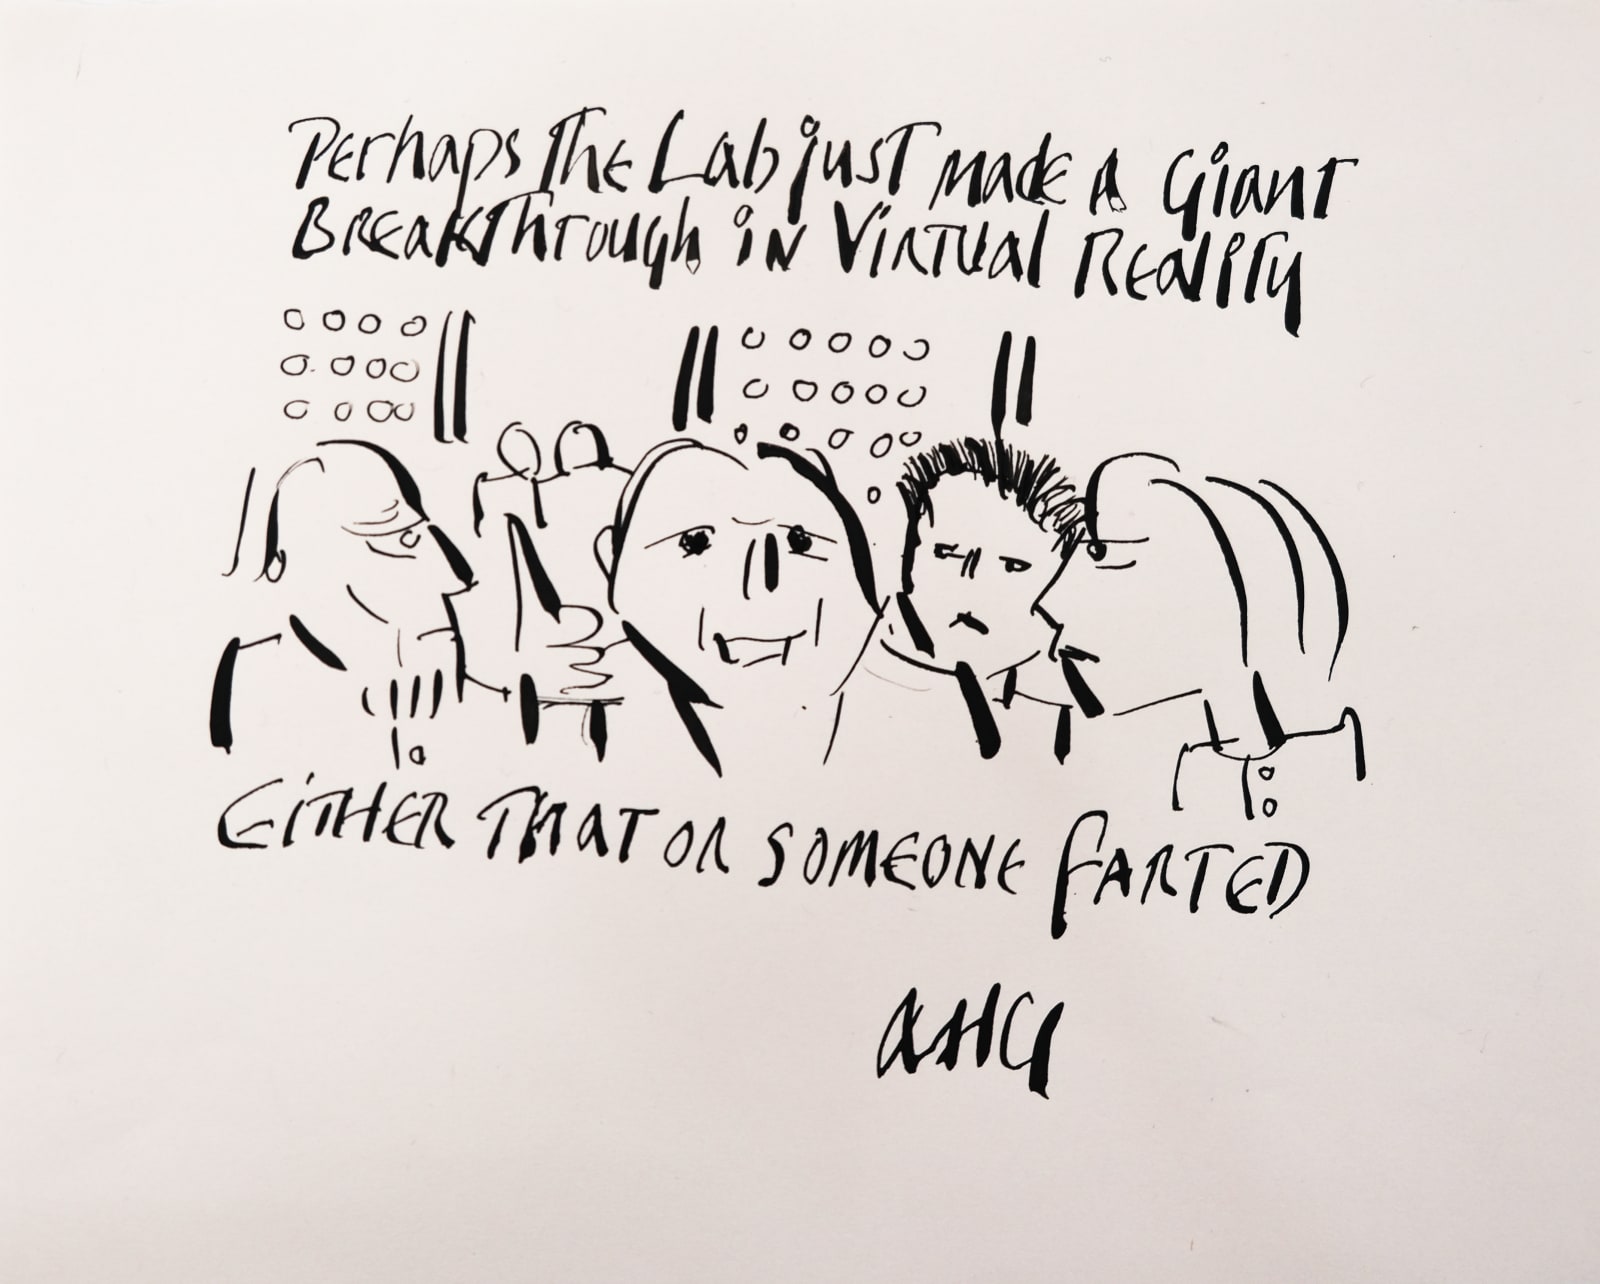 Perhaps The Lab just made A Giant
Breakthrough in Virtual Reality
EITHER THAT OR SOMEONE FARTED
AHG